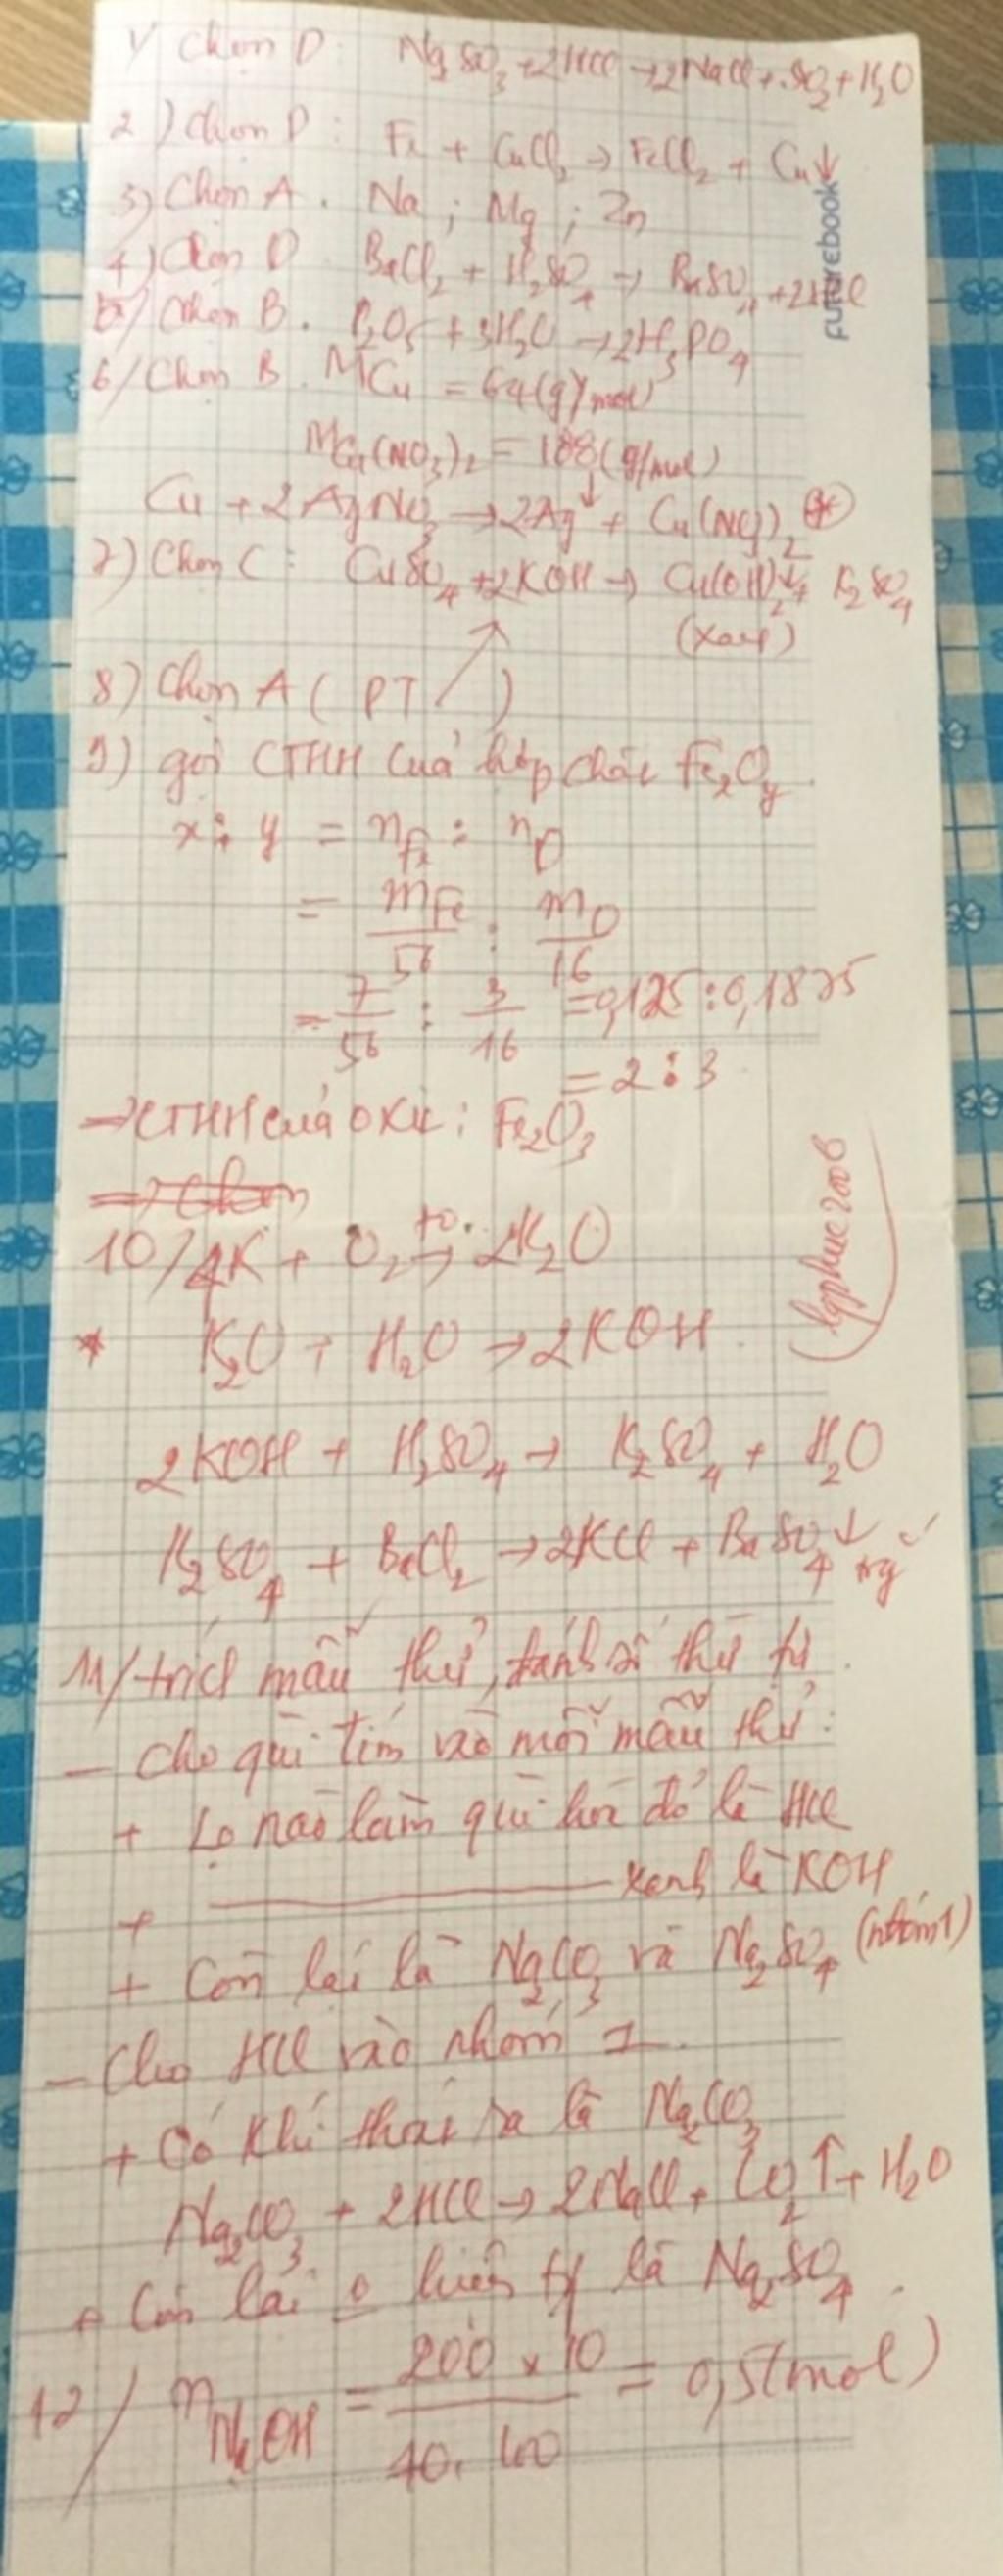 1/ Chọn D: Na2SO3 + 2HCl → 2NaCl + SO2 + H2O
2) Chọn D: Fe + CuCl2 → FeCl2 + Cu↓
3) Chọn A. Na; Mg; Zn
4) Chọn D BaCl2 + H2SO4 → BaSO4 + 2HCl
5/ Chọn B. P2O5 + 3H2O → 2H3PO4
6/ Chọn B. MCu = 64(g/mol)
MCu(NO3)2 = 188(g/mol)
Cu + 2AgNO3 → 2Ag↓ + Cu(NO3)2
7) Chọn C: CuSO4 + 2KOH → Cu(OH)2↓ + K2SO4
(xanh)
8) Chọn A ( PT ↗ )
9) gọi CTHH của hợp chất FexOy
x : y = nFe : nO
= mFe/56 : mO/16
= 7/56 : 3/16 = 0,125 : 0,1875
= 2 : 3
→ CTHH của oxit: Fe2O3
⇒ Chọn
10/ 4K + O2 →to 2K2O
* K2O + H2O → 2KOH
2KOH + H2SO4 → K2SO4 + H2O
K2SO4 + BaCl2 → 2KCl + BaSO4↓
11/ trích mẫu thử, đánh số thứ tự.
- Cho quì tím vào mỗi mẫu thử:
+ Lọ nào làm quì hóa đỏ là HCl
+ ———— xanh là KOH
+ Còn lại là Na2CO3 và Na2SO4 (nhóm 1)
- Cho HCl vào nhóm 1.
+ Có khí thoát ra là Na2CO3
Na2CO3 + 2HCl → 2NaCl + CO2↑ + H2O
+ Còn lại o hiện tg là Na2SO4.
12/ nNaOH = 200 x 10 / 40.100 = 0,5(mol)
futurebook
lgphuc2006